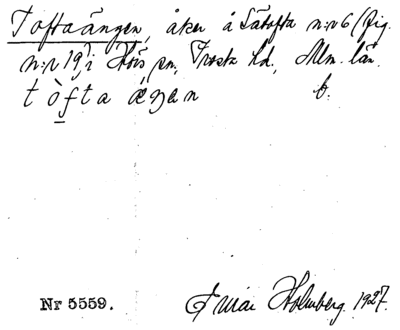 Toftaängen, åker å Sätofta n:r 6 (fig.
n:r 19) i Hörs sn, Frosta hd, Mlm. län.
tòfta ä́ŋən b.
Nr 5559. Einar Holmberg. 1927.